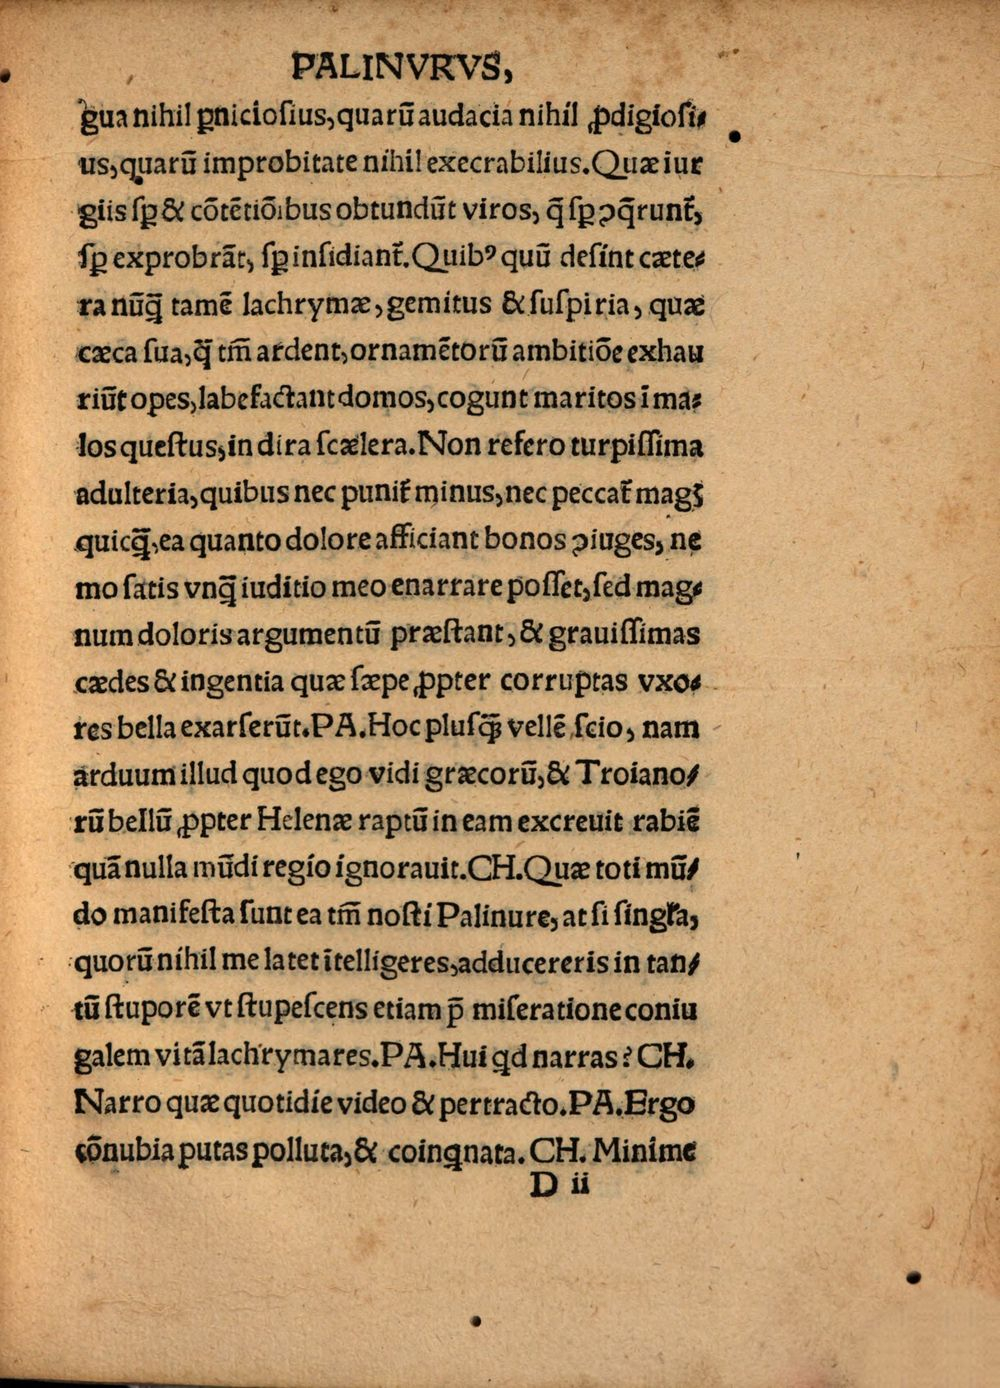 PALINVRVS,
gua nihil ꝑniciosius, quarū audacia nihil ꝓdigiosi⸗
us, quarū improbitate nihil execrabilius. Quæ iur
giis sꝑ & cōtētiōibus obtundūt viros, q̄ sꝑ ꝯq̄runt᷑,
sꝑ exprobrāt, sꝑ insidiant᷑. Quibꝰ quū desint cæte⸗
ra nūꝗ̄ tamē lachrymæ, gemitus & suspiria, quæ
cæca sua, ꝗ̄ tm̄ ardent, ornamētorū ambitiōe exhau
riūt opes, labefactant domos, cogunt maritos ī ma⸗
los questus, in dira scælera. Non refero turpissima
adulteria, quibus nec punit᷑ minus, nec peccat᷑ magꝭ
quicꝗ̄, ea quanto dolore afficiant bonos ꝯiuges, ne
mo satis vnꝗ̄ iuditio meo enarrare posset, sed mag⸗
num doloris argumentū præstant, & grauissimas
cædes & ingentia quæ sæpe ꝓpter corruptas vxo⸗
res bella exarserūt. PA. Hoc plusꝗ̄ vellē scio, nam
arduum illud quod ego vidi græcorū, & Troiano⸗
rū bellū ꝓpter Helenæ raptū in eam excreuit rabiē
quā nulla mūdi regio ignorauit. CH. Quæ toti mū⸗
do manifesta sunt ea tm̄ nosti Palinure, at si singĺa,
quorū nihil me latet ītelligeres, adducereris in tan⸗
tū stuporē vt stupescens etiam p̄ miseratione coniu
galem vitā lachrymares. PA. Hui ꝗd narras? CH.
Narro quæ quotidie video & pertracto. PA. Ergo
cōnubia putas polluta, & coinꝗnata. CH. Minime
D ii